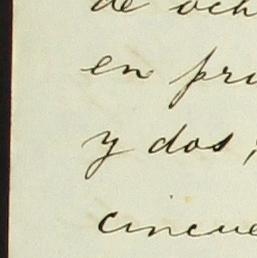 de och
en pri
y dos,
cincue